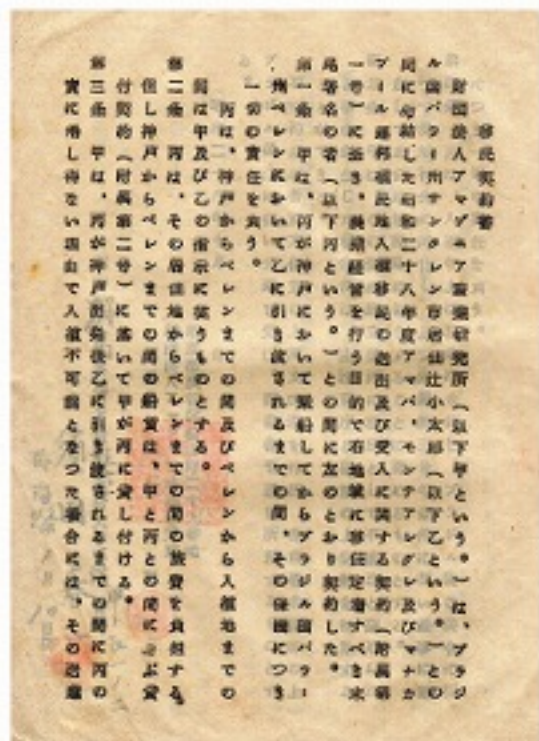 移民契約書
財団法人アマゾニア産業研究所(以下甲という。)は、ブラジ
ル国パラー州サンタレン市居住辻小太郎(以下乙という。)との
間に締結した昭和二十八年度アマパ、モンテアレグレ及びマナカ
プール移民地入植移民の送出及び受入に関する契約(附属第
一号)に基き、農業経営を行う目的で右地域に移住定着すべき末
尾署名の者(以下丙という。)との間に左のとおり契約した。
第一条 甲は、丙が神戸において乗船してからブラジル国パラー
州ベレンにおいて乙に引き渡されるまでの間、その保護につき
一切の責任を負う。
丙は、神戸からベレンまでの間及びベレンから入植地までの
間は甲及び乙の指示に従うものとする。
第二条 丙は、その居住地からベレンまでの間の旅費を負担する。
但し神戸からベレンまでの間の船賃は、甲と丙との間に結ぶ貸
付契約(附属第二号)に基いて甲が丙に貸し付ける。
第三条 甲は、丙が神戸出発後乙に引き渡されるまでの間に丙の
責に帰し得ない理由で入植不可能となつた場合には、その送還